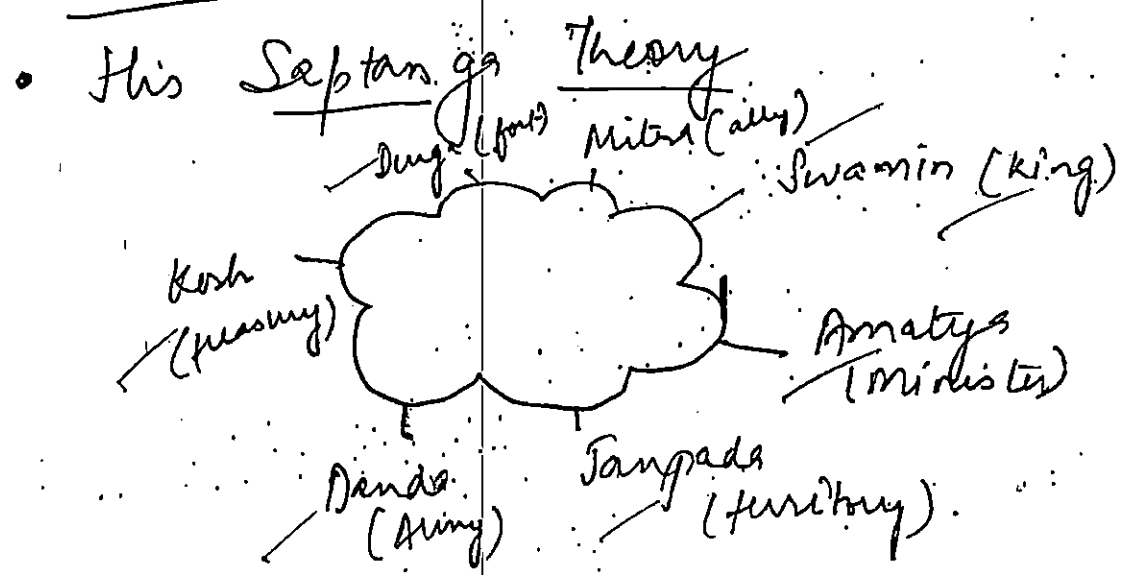 • His Saptanga Theory
Durga (fort)
Mitra (ally)
Swamin (King)
Kosh
(treasury)
Amatya
(Minister)
Danda
(Army)
Janpada
(territory).